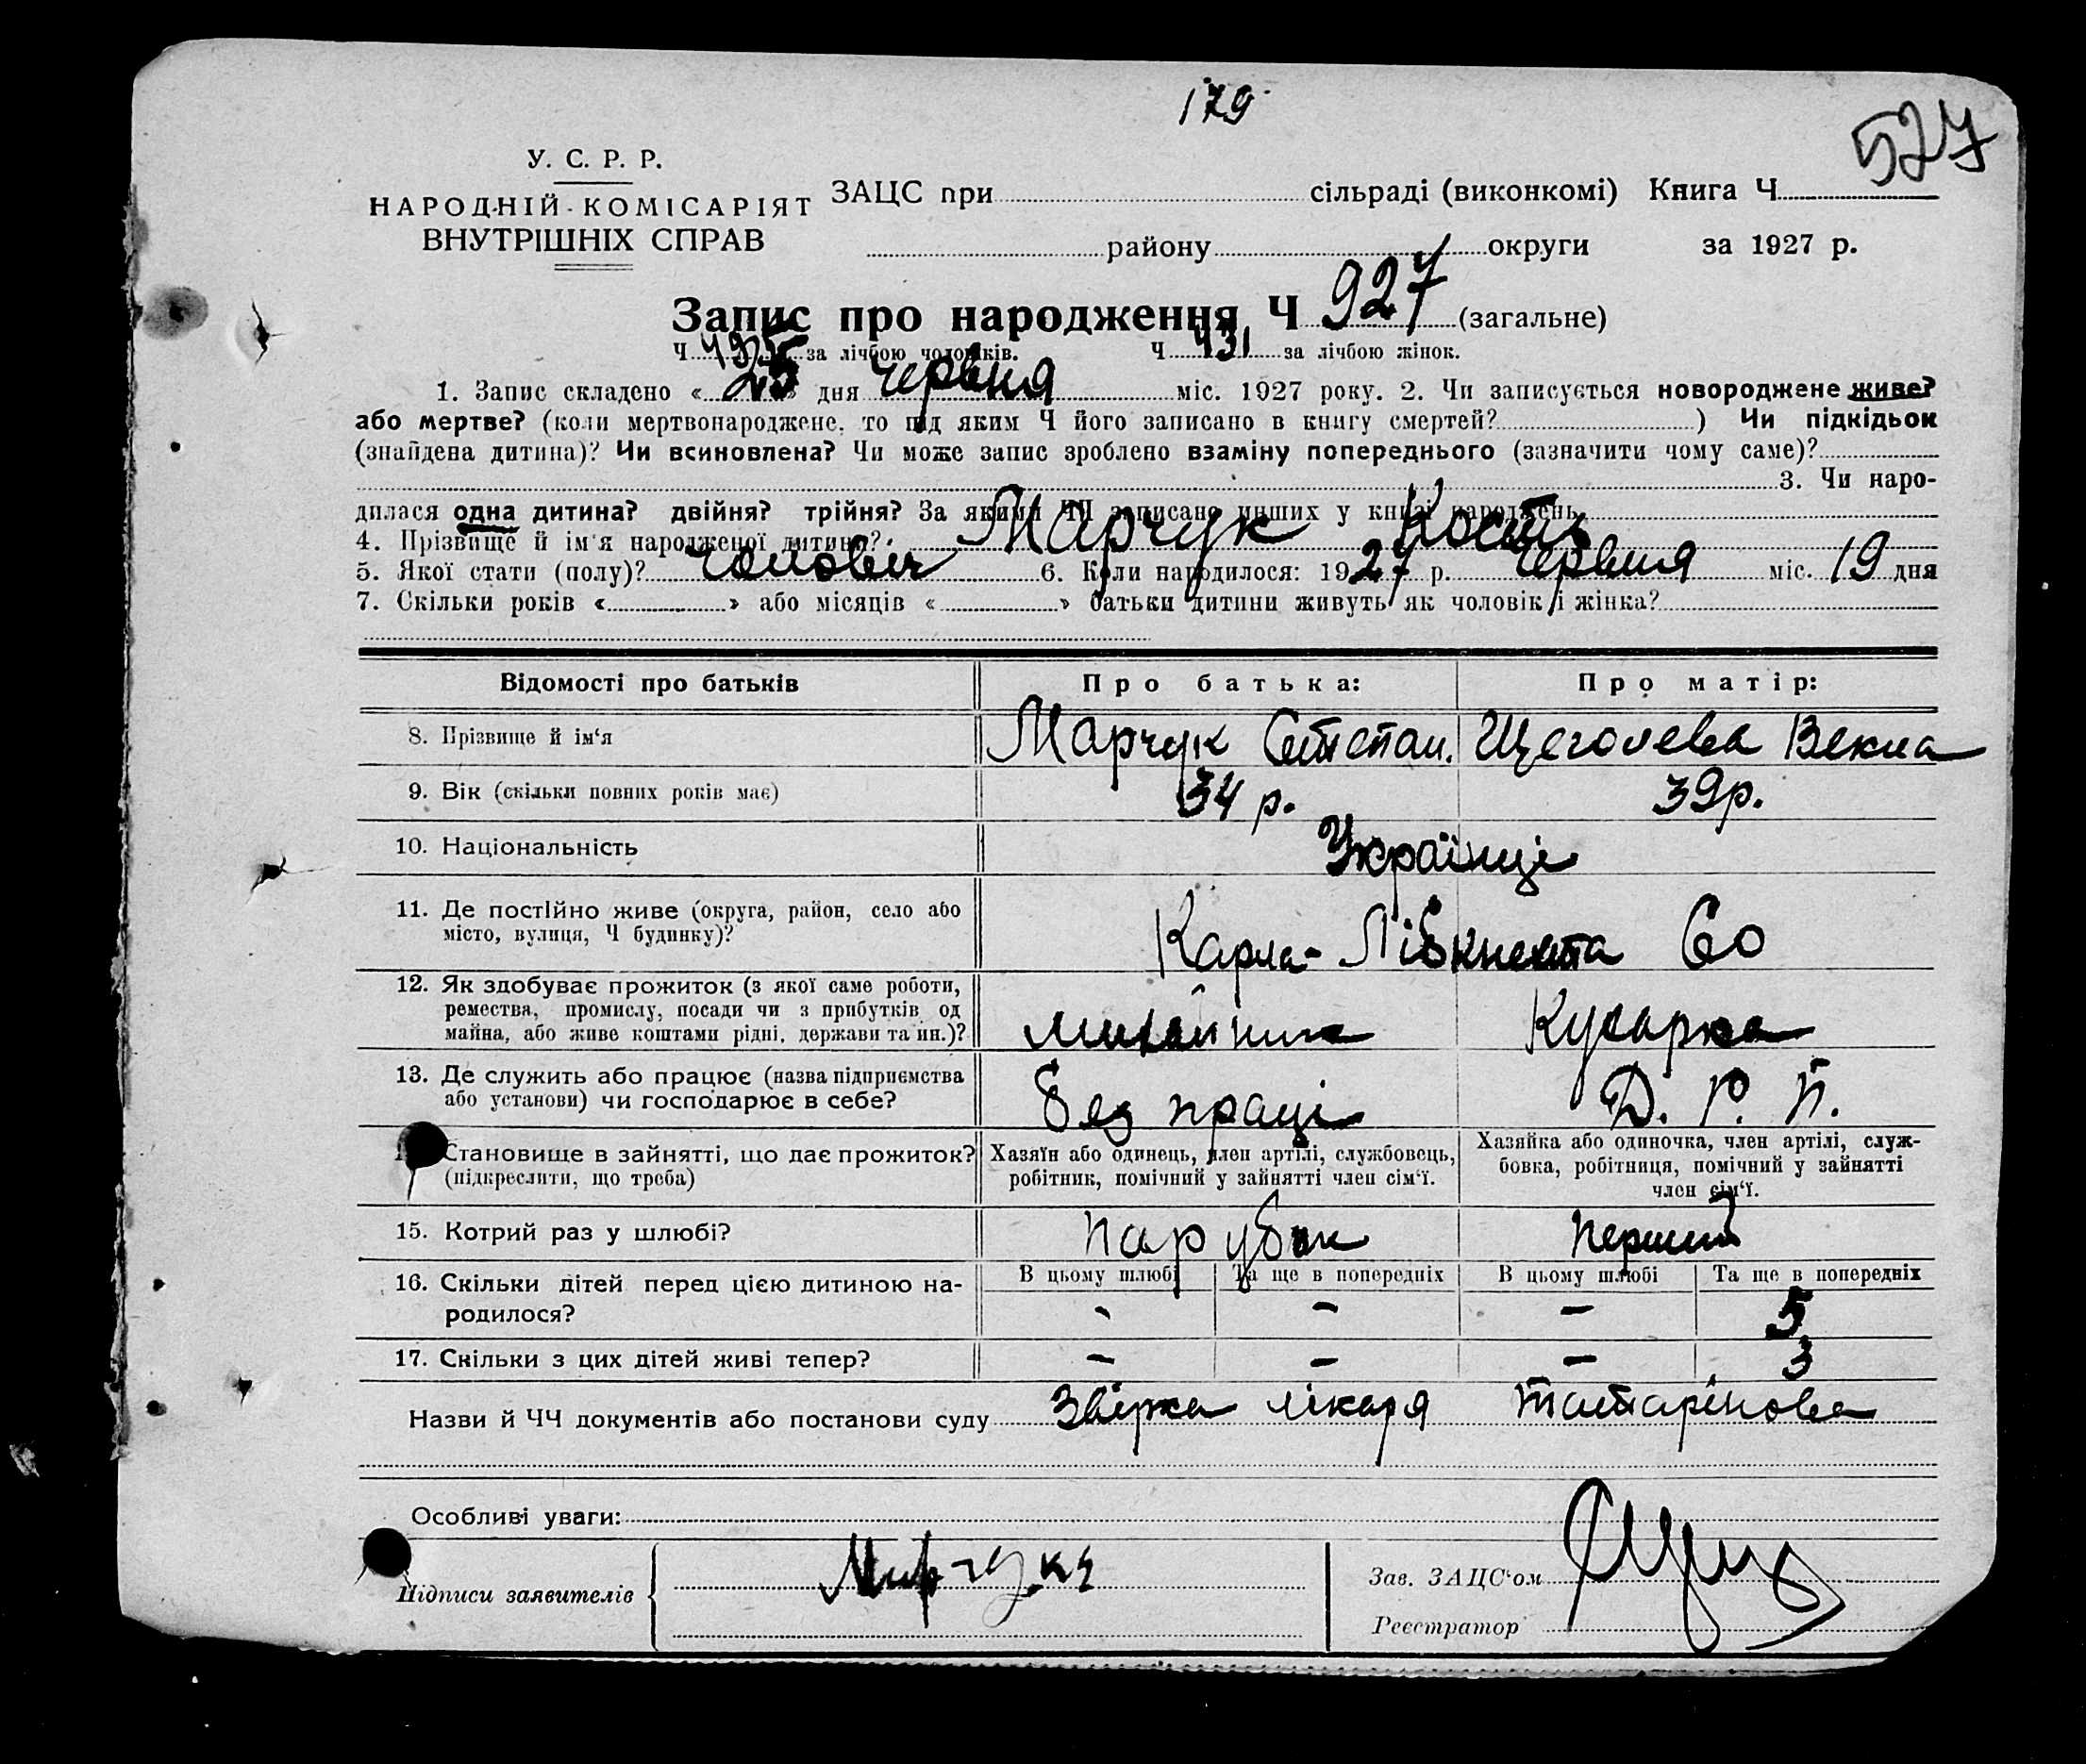 179
527
У. С. Р. Р.
НАРОДНІЙ КОМІСАРІЯТ
ВНУТРІШНІХ СПРАВ
ЗАЦС при сільраді (виконкомі) Книга Ч
району округи за 1927 р.
Запис про народження Ч 927 (загальне)
Ч за лічбою чоловіків. Ч 431 за лічбою жінок.
1. Запис складено «25» дня червня міс. 1927 року. 2. Чи записується новороджене живе?
або мертве? (коли мертвонароджене, то під яким Ч його записано в книгу смертей? ) Чи підкідьок
(знайдена дитина)? Чи всиновлена? Чи може запис зроблено взаміну попереднього (зазначити чому саме)?
3. Чи наро-
дилася одна дитина? двійня? трійня? За якими ЧЧ записано инших у книзі народжень
4. Прізвище й ім'я народженої дитини? Марчук Кость
5. Якої стати (полу)? чоловіч 6. Коли народилося: 1927 р. червня міс. 19 дня
7. Скільки років « » або місяців « » батьки дитини живуть як чоловік і жінка?
Відомості про батьків Про батька: Про матір:
8. Прізвище й ім'я Марчук Степан. Щеголева Векла
9. Вік (скільки повних років має) 34 р. 39р.
10. Національність Українці
11. Де постійно живе (округа, район, село або
місто, вулиця, Ч будинку)? Карла-Лібкнехта 60
12. Як здобуває прожиток (з якої саме роботи,
ремества, промислу, посади чи з прибутків од
майна, або живе коштами рідні, держави та ин.)? Кухарка
13. Де служить або працює (назва підприємства
або установи) чи господарює в себе? Без праці Д. Р. П.
Становище в зайнятті, що дає прожиток?
(підкреслити, що треба)
Хазяїн або одинець, член артілі, службовець,
робітник, помічний у зайнятті член сім'ї.
Хазяйка або одиночка, член артілі, служ-
бовка, робітниця, помічний у зайнятті
член сім'ї.
15. Котрий раз у шлюбі? парубок перший
16. Скільки дітей перед цією дитиною на-
родилося?
В цьому шлюбі Та ще в попередніх В цьому шлюбі Та ще в попередніх
- - - 5
17. Скільки з цих дітей живі тепер? - - - 3
Назви й ЧЧ документів або постанови суду Звірка лікаря Татарінова
Особливі уваги:
Підписи заявителів Марчук
Зав. ЗАЦС'ом
Реєстратор